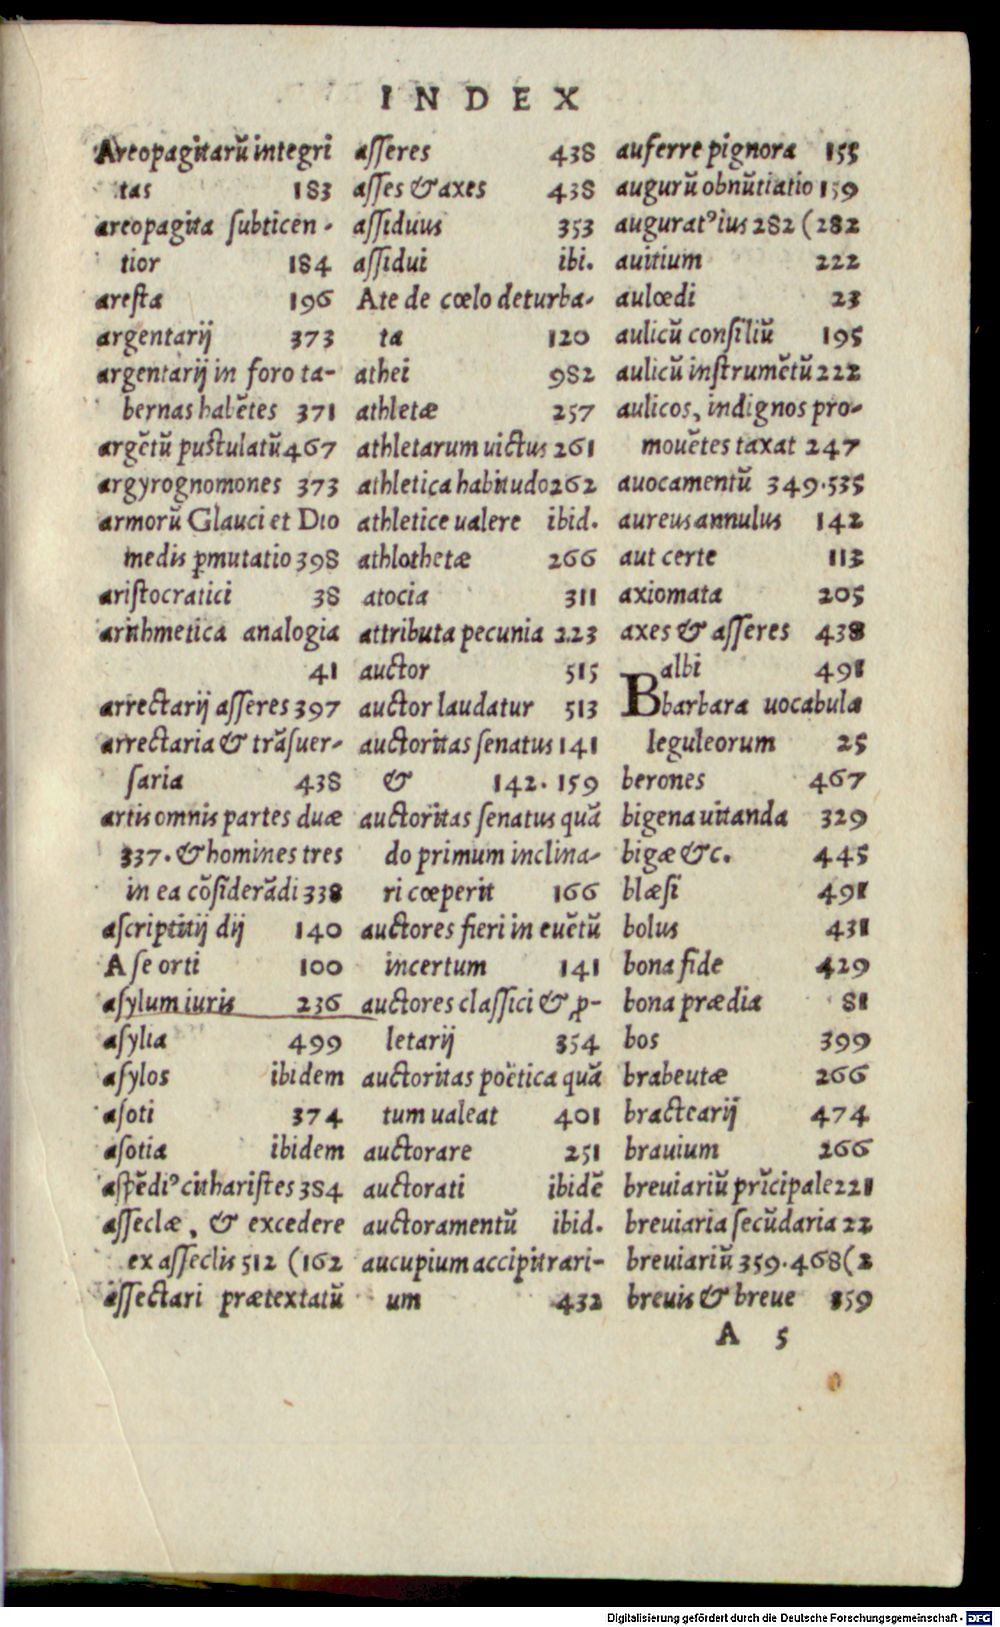 INDEX
Areopagitarũ integri
tas 183
areopagita subticen-
tior 184
aresta 196
argentarij 373
argentarij in foro ta-
bernas habẽtes 371
argẽtũ pustulatũ 467
argyrognomones 373
armorũ Glauci et Dio
medis ꝑmutatio 398
aristocratici 38
arithmetica analogia
41
arrectarij asseres 397
arrectaria & trãsuer-
saria 438
artis omnis partes duæ
337. & homines tres
in ea cõsiderãdi 338
ascriptitij dij 140
A se orti 100
asylum iuris 236
asylia 499
asylos ibidem
asoti 374
asotia ibidem
aspẽdiꝰ citharistes 384
asseclæ, & excedere
ex asseclis 512 (162
assectari prætextatũ
asseres 438
asses & axes 438
assiduus 353
assidui ibi.
Ate de cœlo deturba-
ta 120
athei 982
athletæ 257
athletarum uictus 261
athletica habitudo 262
athletice ualere ibid.
athlothetæ 266
atocia 311
attributa pecunia 223
auctor 515
auctor laudatur 513
auctoritas senatus 141
& 142. 159
auctoritas senatus quã
do primum inclina-
ri cœperit 166
auctores fieri in euẽtũ
incertum 141
auctores classici & ꝓ-
letarij 354
auctoritas poëtica quã
tum ualeat 401
auctorare 251
auctorati ibidẽ
auctoramentũ ibid.
aucupium accipitrari-
um 432
auferre pignora 155
augurũ obnũtiatio 159
auguratꝰ ius 282 (282
auitium 222
aulœdi 23
aulicũ consiliũ 195
aulicũ instrumẽtũ 222
aulicos, indignos pro-
mouẽtes taxat 247
auocamentũ 349.535
aureus annulus 142
aut certe 113
axiomata 205
axes & asseres 438
Balbi 491
barbara uocabula
leguleorum 25
berones 467
bigena uitanda 329
bigæ &c. 445
blæsi 491
bolus 431
bona fide 429
bona prædia 81
bos 399
brabeutæ 266
bractearij 474
brauium 266
breuiariũ prĩcipale 221
breuiaria secũdaria 22
breuiariũ 359.468 (2
breuis & breue 159
A 5
Digitalisierung gefördert durch die Deutsche Forschungsgemeinschaft - DFG